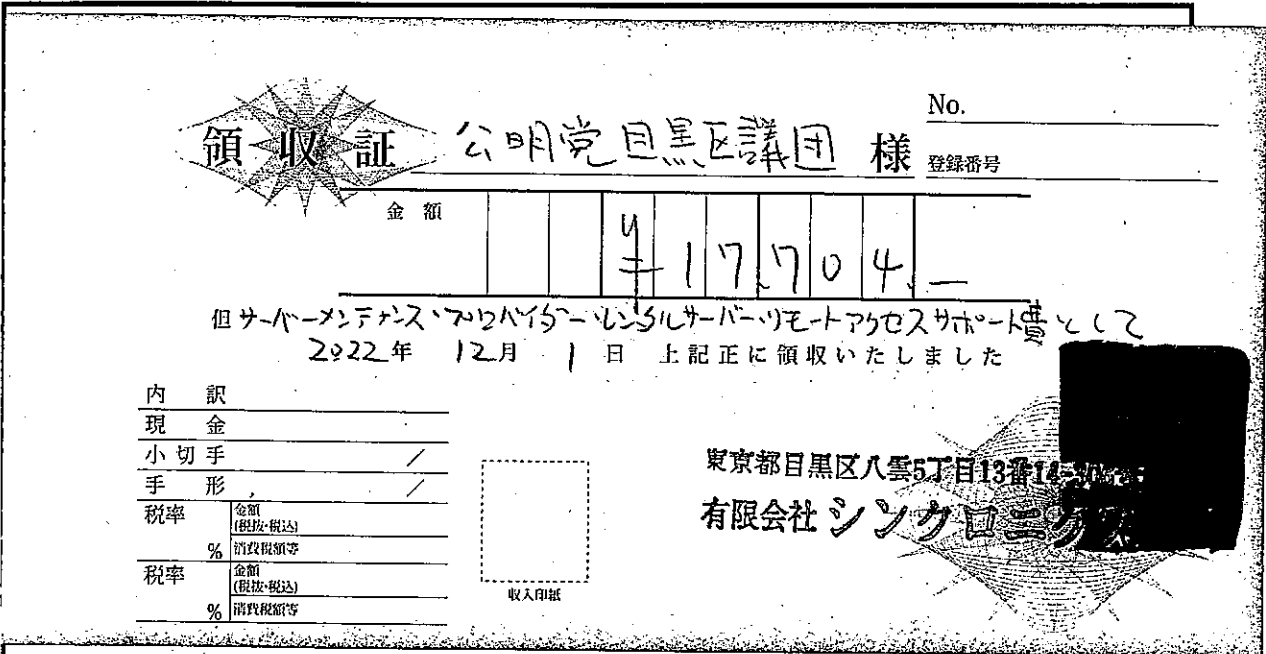 領収証
公明党目黒区議団 様
No.
登録番号
金額
¥17,704.—
但 サーバーメンテナンス・プロバイダー・レンタルサーバー・リモートアクセスサポート費として
2022年 12月 1日 上記正に領収いたしました
内 訳
現 金
小切手 /
手 形 /
税率 %
金額(税抜・税込)
消費税額等
税率 %
金額(税抜・税込)
消費税額等
収入印紙
東京都目黒区八雲5丁目13番14-
有限会社シンクロニクス